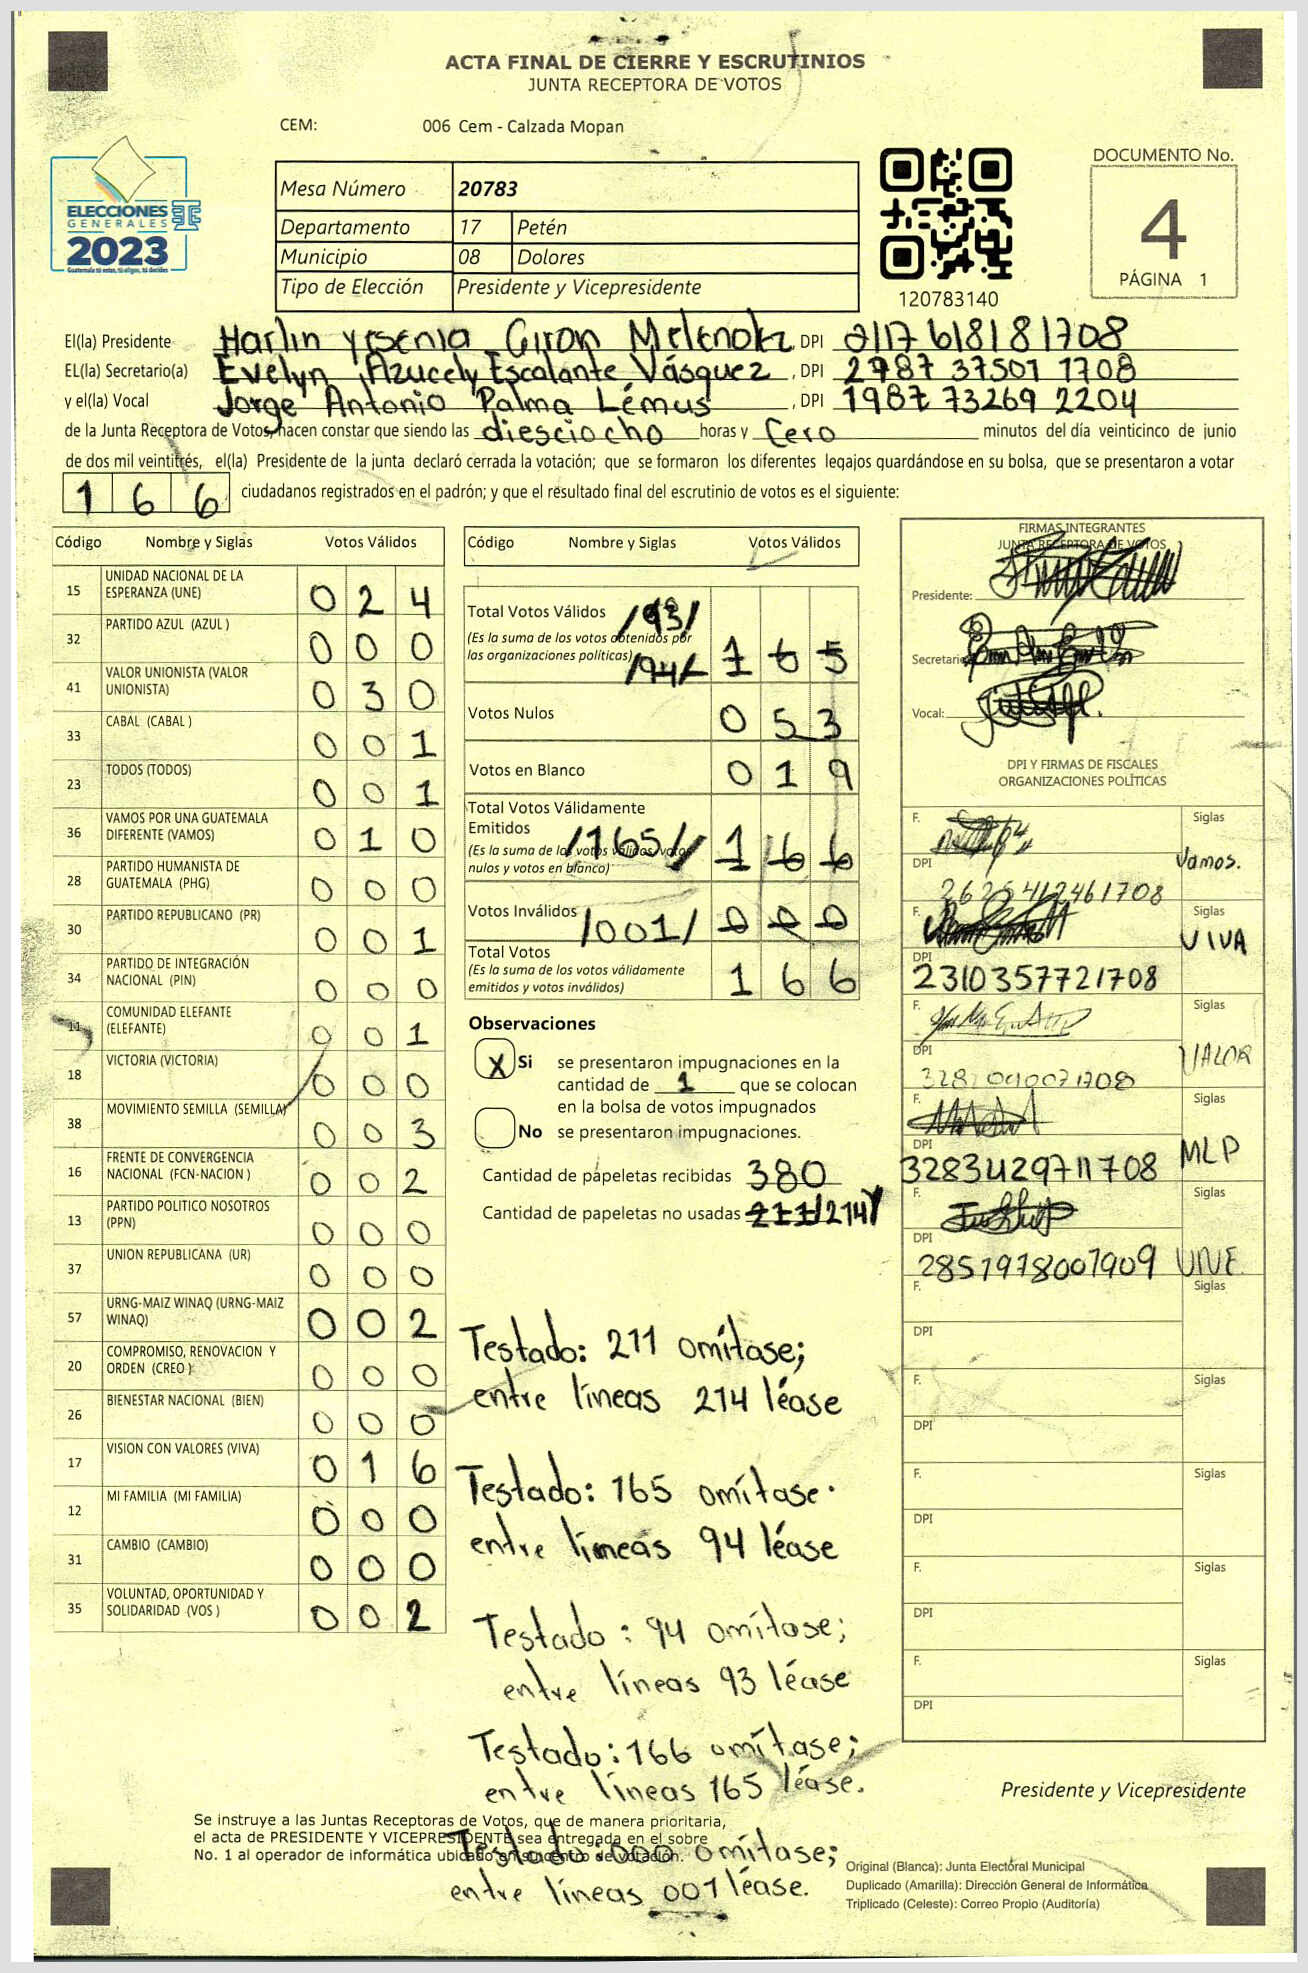 ACTA FINAL DE CIERRE Y ESCRUTINIOS
JUNTA RECEPTORA DE VOTOS
CEM: 006 Cem - Calzada Mopan
ELECCIONES
GENERALES
2023
Guatemala tú votas, tú eliges, tú decides
Mesa Número 20783
Departamento 17 Petén
Municipio 08 Dolores
Tipo de Elección Presidente y Vicepresidente
120783140
DOCUMENTO No.
4
PÁGINA 1
El(la) Presidente Harlin yesenia Giron DPI 2117 61818 1708
EL(la) Secretario(a) Evelyn Azucely Escalante Vásquez , DPI 2787 37501 1708
y el(la) Vocal Jorge Antonio Palma Lémus , DPI 1987 73269 2204
de la Junta Receptora de Votos, hacen constar que siendo las diesciocho horas y Cero minutos del día veinticinco de junio
de dos mil veintitrés, el(la) Presidente de la junta declaró cerrada la votación; que se formaron los diferentes legajos guardándose en su bolsa, que se presentaron a votar
1 6 6 ciudadanos registrados en el padrón; y que el resultado final del escrutinio de votos es el siguiente:
Código Nombre y Siglas Votos Válidos
15 UNIDAD NACIONAL DE LA ESPERANZA (UNE) 0 2 4
32 PARTIDO AZUL (AZUL ) 0 0 0
41 VALOR UNIONISTA (VALOR UNIONISTA) 0 3 0
33 CABAL (CABAL ) 0 0 1
23 TODOS (TODOS) 0 0 1
36 VAMOS POR UNA GUATEMALA DIFERENTE (VAMOS) 0 1 0
28 PARTIDO HUMANISTA DE GUATEMALA (PHG) 0 0 0
30 PARTIDO REPUBLICANO (PR) 0 0 1
34 PARTIDO DE INTEGRACIÓN NACIONAL (PIN) 0 0 0
11 COMUNIDAD ELEFANTE (ELEFANTE) 0 0 1
18 VICTORIA (VICTORIA) 0 0 0
38 MOVIMIENTO SEMILLA (SEMILLA) 0 0 3
16 FRENTE DE CONVERGENCIA NACIONAL (FCN-NACION ) 0 0 2
13 PARTIDO POLITICO NOSOTROS (PPN) 0 0 0
37 UNION REPUBLICANA (UR) 0 0 0
57 URNG-MAIZ WINAQ (URNG-MAIZ WINAQ) 0 0 2
20 COMPROMISO, RENOVACION Y ORDEN (CREO ) 0 0 0
26 BIENESTAR NACIONAL (BIEN) 0 0 0
17 VISION CON VALORES (VIVA) 0 1 6
12 MI FAMILIA (MI FAMILIA) 0 0 0
31 CAMBIO (CAMBIO) 0 0 0
35 VOLUNTAD, OPORTUNIDAD Y SOLIDARIDAD (VOS ) 0 0 2
Código Nombre y Siglas Votos Válidos
Total Votos Válidos /93/
(Es la suma de los votos obtenidos por
las organizaciones políticas) /94/ 1 6 5
Votos Nulos 0 5 3
Votos en Blanco 0 1 9
Total Votos Válidamente
Emitidos
(Es la suma de los votos válidos, votos
nulos y votos en blanco) /165/ 1 6 6
Votos Inválidos /001/ 0 0 0
Total Votos
(Es la suma de los votos válidamente
emitidos y votos inválidos) 1 6 6
Observaciones
X Si se presentaron impugnaciones en la
cantidad de 1 que se colocan
en la bolsa de votos impugnados
No se presentaron impugnaciones.
Cantidad de papeletas recibidas 380
Cantidad de papeletas no usadas 211/214/
Testado: 211 omítase;
entre líneas 214 léase
Testado: 165 omítase.
entre líneas 94 léase
Testado: 94 omítase;
entre líneas 93 léase
Testado: 166 omítase;
entre líneas 165 léase.
Testado: 000 omítase;
entre líneas 001 léase.
FIRMAS INTEGRANTES
JUNTA RECEPTORA DE VOTOS
Presidente:
Secretario
Vocal:
DPI Y FIRMAS DE FISCALES
ORGANIZACIONES POLÍTICAS
F. Siglas
DPI Vamos.
2625412461708
F. Siglas
DPI VIVA
2310357721708
F. Siglas
DPI VALOR
F. Siglas
DPI MLP
3283429711708
F. Siglas
DPI UNE
2851978001909
F. Siglas
DPI
F. Siglas
DPI
F. Siglas
DPI
F. Siglas
DPI
F. Siglas
DPI
Presidente y Vicepresidente
Se instruye a las Juntas Receptoras de Votos, que de manera prioritaria,
el acta de PRESIDENTE Y VICEPRESIDENTE sea entregada en el sobre
No. 1 al operador de informática ubicado en su centro de votación.
Original (Blanca): Junta Electoral Municipal
Duplicado (Amarilla): Dirección General de Informática
Triplicado (Celeste): Correo Propio (Auditoría)